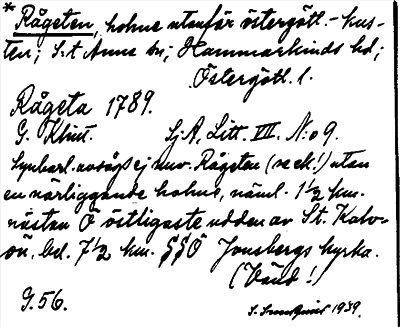 * Rågeten, holme utanför östergötl.-kus-
ten; S:t Anna sn; Hammarkinds hd;
Östergötl. l.
Rågeta 1789.
G. Klint. Sj.A. Litt. VII. N:o 9.
ej nuv. Rågeten (se ek.!) utan
en närliggande holme, näml. 1½ km.
nästan Ö östligaste udden av St. Kalv-
ön, bel. 7½ km. SSÖ Jonsbergs kyrka.
(Vänd!)
G. 56. 1939.